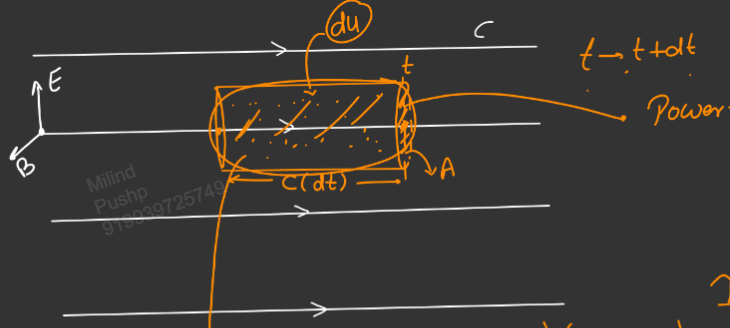 du
C
t
t → t+dt
E
Power
B
C(dt)
A
Milind
Pushp
919939725749